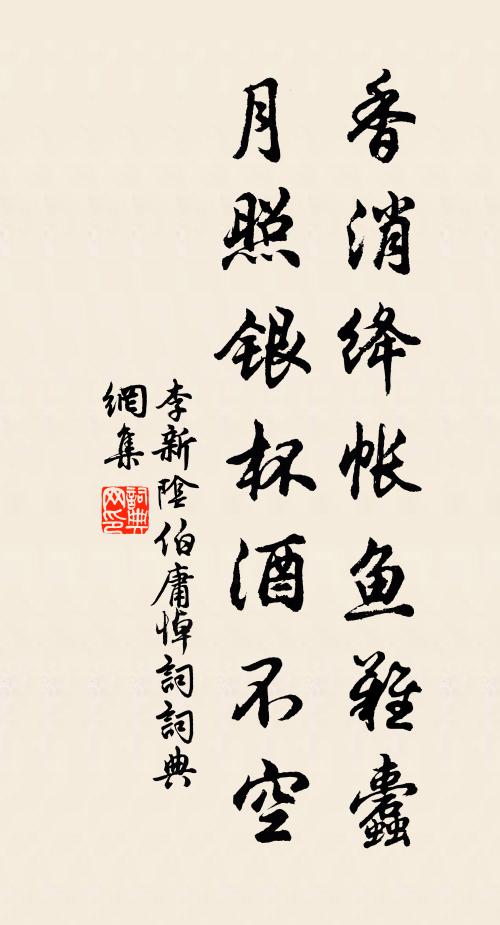 香消绛帐鱼难蠹
月照银杯酒不空
李新陰伯庸悼詞詞典
網集
詞典网印